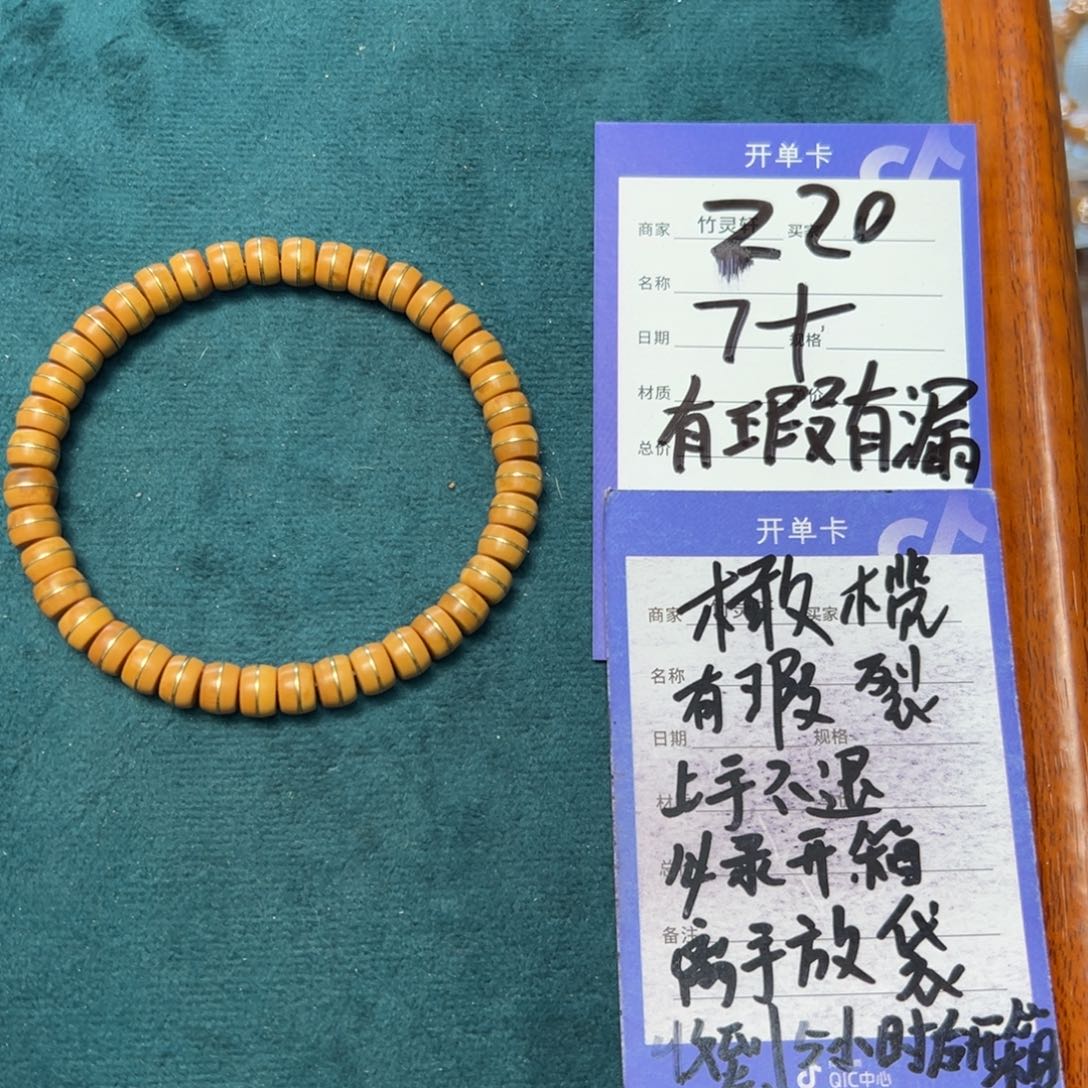 开单卡
商家 竹灵轩 买家
220
名称
7十
日期 规格
材质
有瑕有漏
总价
开单卡
橄榄
商家 买家
名称
有瑕裂
日期 规格
上手不退
必录开箱
备注
离手放袋
收到 小时后开箱
QIC中心